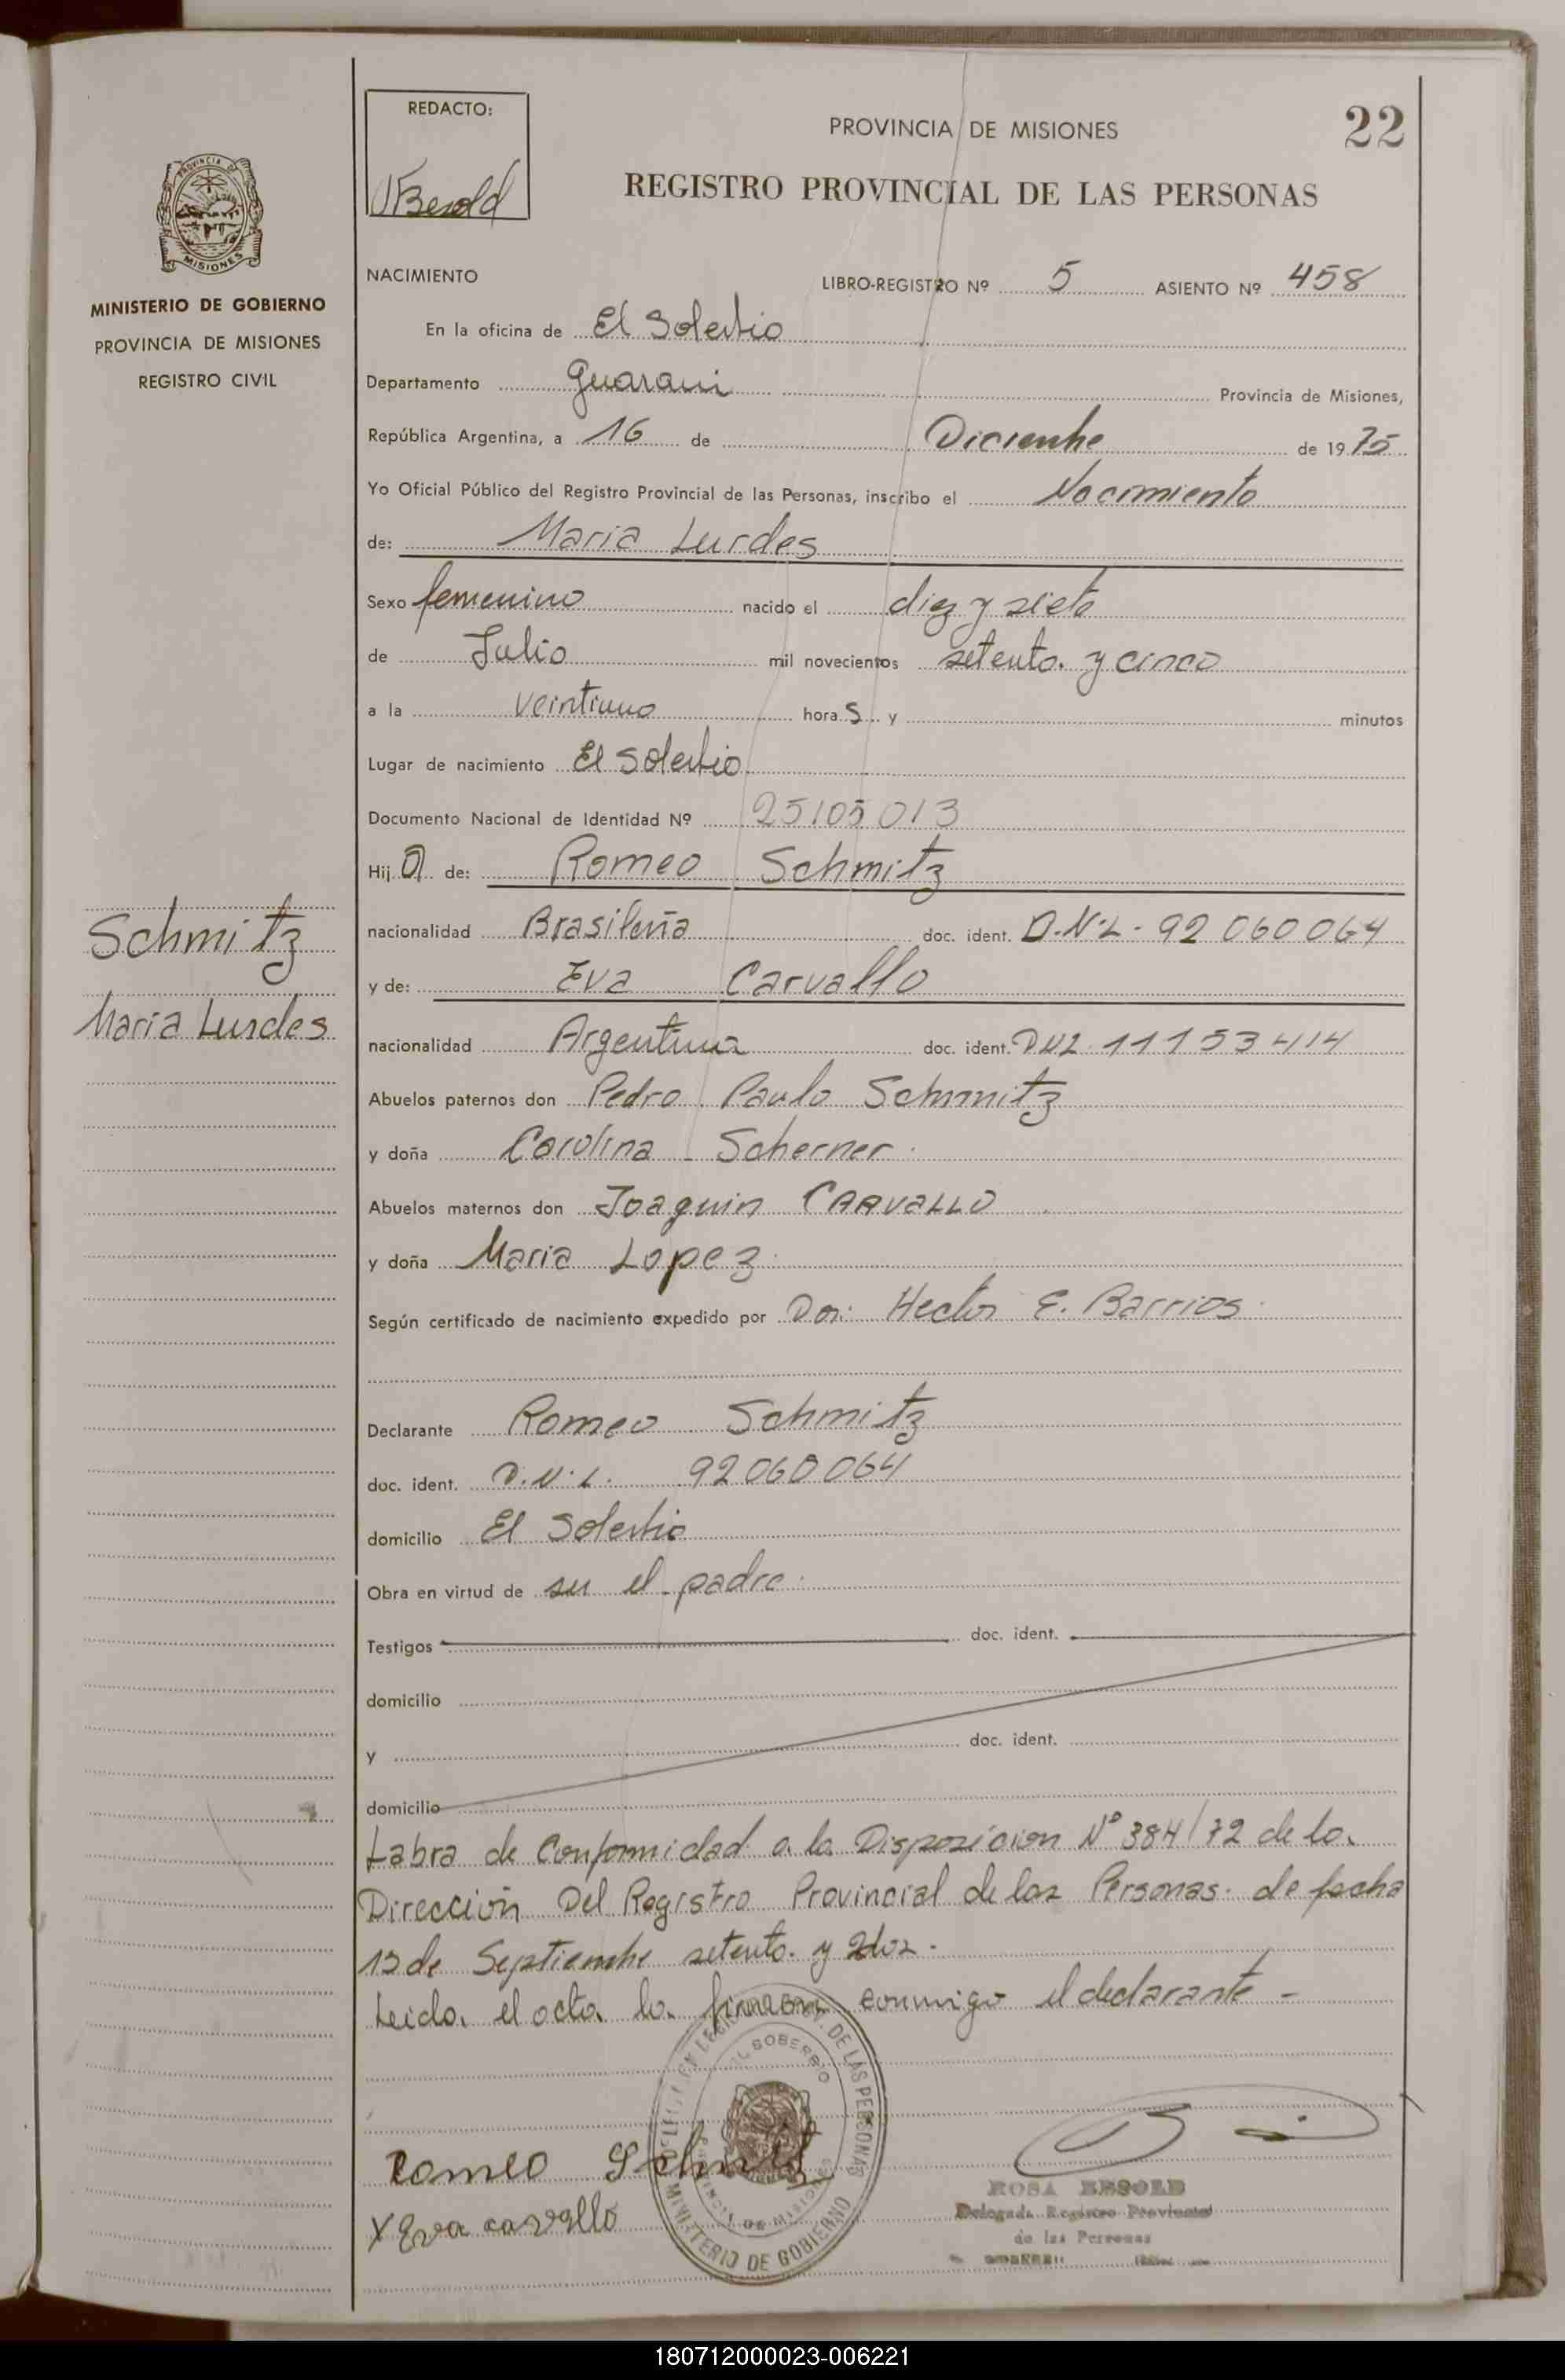 REDACTO:
Besold
PROVINCIA DE MISIONES
22
REGISTRO PROVINCIAL DE LAS PERSONAS
PROVINCIA DE
MISIONES
MINISTERIO DE GOBIERNO
PROVINCIA DE MISIONES
REGISTRO CIVIL
NACIMIENTO
LIBRO-REGISTRO Nº 5 ASIENTO Nº 458
En la oficina de El Soberbio
Departamento Guarani Provincia de Misiones,
República Argentina, a 16 de Diciembre de 1975
Yo Oficial Público del Registro Provincial de las Personas, inscribo el Nacimiento
de: Maria Lurdes
Sexo femenino nacido el diez y siete
de Julio mil novecientos setenta y cinco
a la veintiuno horas y minutos
Lugar de nacimiento El Soberbio
Documento Nacional de Identidad Nº 25105013
Hija de: Romeo Schmitz
nacionalidad Brasileña doc. ident. D.N.I. 92060064
y de: Eva Carvallo
nacionalidad Argentina doc. ident. DNI 11153414
Abuelos paternos don Pedro Paulo Schmitz
y doña Carolina Scherner
Abuelos maternos don Joaquin CARVALLO
y doña Maria Lopez
Según certificado de nacimiento expedido por Don: Hector E. Barrios
Schmitz
Maria Lurdes
Declarante Romeo Schmitz
doc. ident. D.N.I. 92060064
domicilio El Soberbio
Obra en virtud de ser el padre.
Testigos doc. ident.
domicilio
y doc. ident.
domicilio
Labra de Conformidad a la Disposicion Nº 384/72 de la
Dirección Del Registro Provincial de las Personas de fecha
13 de Septiembre setenta y dos.
Leida el acta la firman conmigo el declarante -
DE LAS PERSONAS
EL SOBERBIO
PROVINCIA DE MISIONES
MINISTERIO DE GOBIERNO
Romeo Schmitz
X Eva carvallo
ROSA BESOLD
Delegada Registro Provincial
de las Personas
180712000023-006221